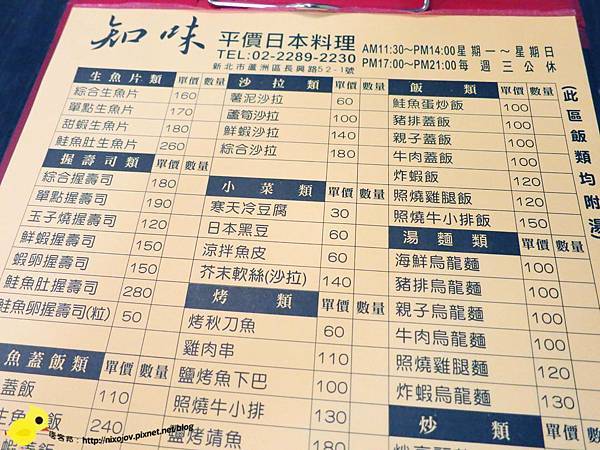 知味 平價日本料理
TEL:02-2289-2230
新北市蘆洲區長興路52-1號
AM11:30~PM14:00星期一~星期日
PM17:00~PM21:00每週三公休
生魚片類 單價 數量
綜合生魚片 160
單點生魚片 170
甜蝦生魚片 180
鮭魚肚生魚片 260
握壽司類 單價 數量
綜合握壽司 180
單點握壽司 190
玉子燒握壽司 120
鮮蝦握壽司 150
蝦卵握壽司 150
鮭魚肚握壽司 280
鮭魚卵握壽司(粒) 50
魚蓋飯類 單價 數量
蓋飯 110
240
沙拉類 單價 數量
薯泥沙拉 60
蘆筍沙拉 100
鮮蝦沙拉 140
綜合沙拉 180
小菜類 單價 數量
寒天冷豆腐 30
日本黑豆 60
涼拌魚皮 60
芥末軟絲(沙拉) 140
烤類 單價 數量
烤秋刀魚 60
雞肉串 110
鹽烤魚下巴 100
照燒牛小排 130
鹽烤鯖魚 180
飯類 單價 數量
鮭魚蛋炒飯 100
豬排蓋飯 100
親子蓋飯 100
牛肉蓋飯 100
炸蝦飯 120
照燒雞腿飯 120
照燒牛小排飯 150
湯麵類 單價 數量
海鮮烏龍麵 100
豬排烏龍麵 100
親子烏龍麵 100
牛肉烏龍麵 100
照燒烏龍麵 120
炸蝦烏龍麵 130
炒類 單價 數量
(此區飯類均附湯)
http://nixojov.pixnet.net/blog